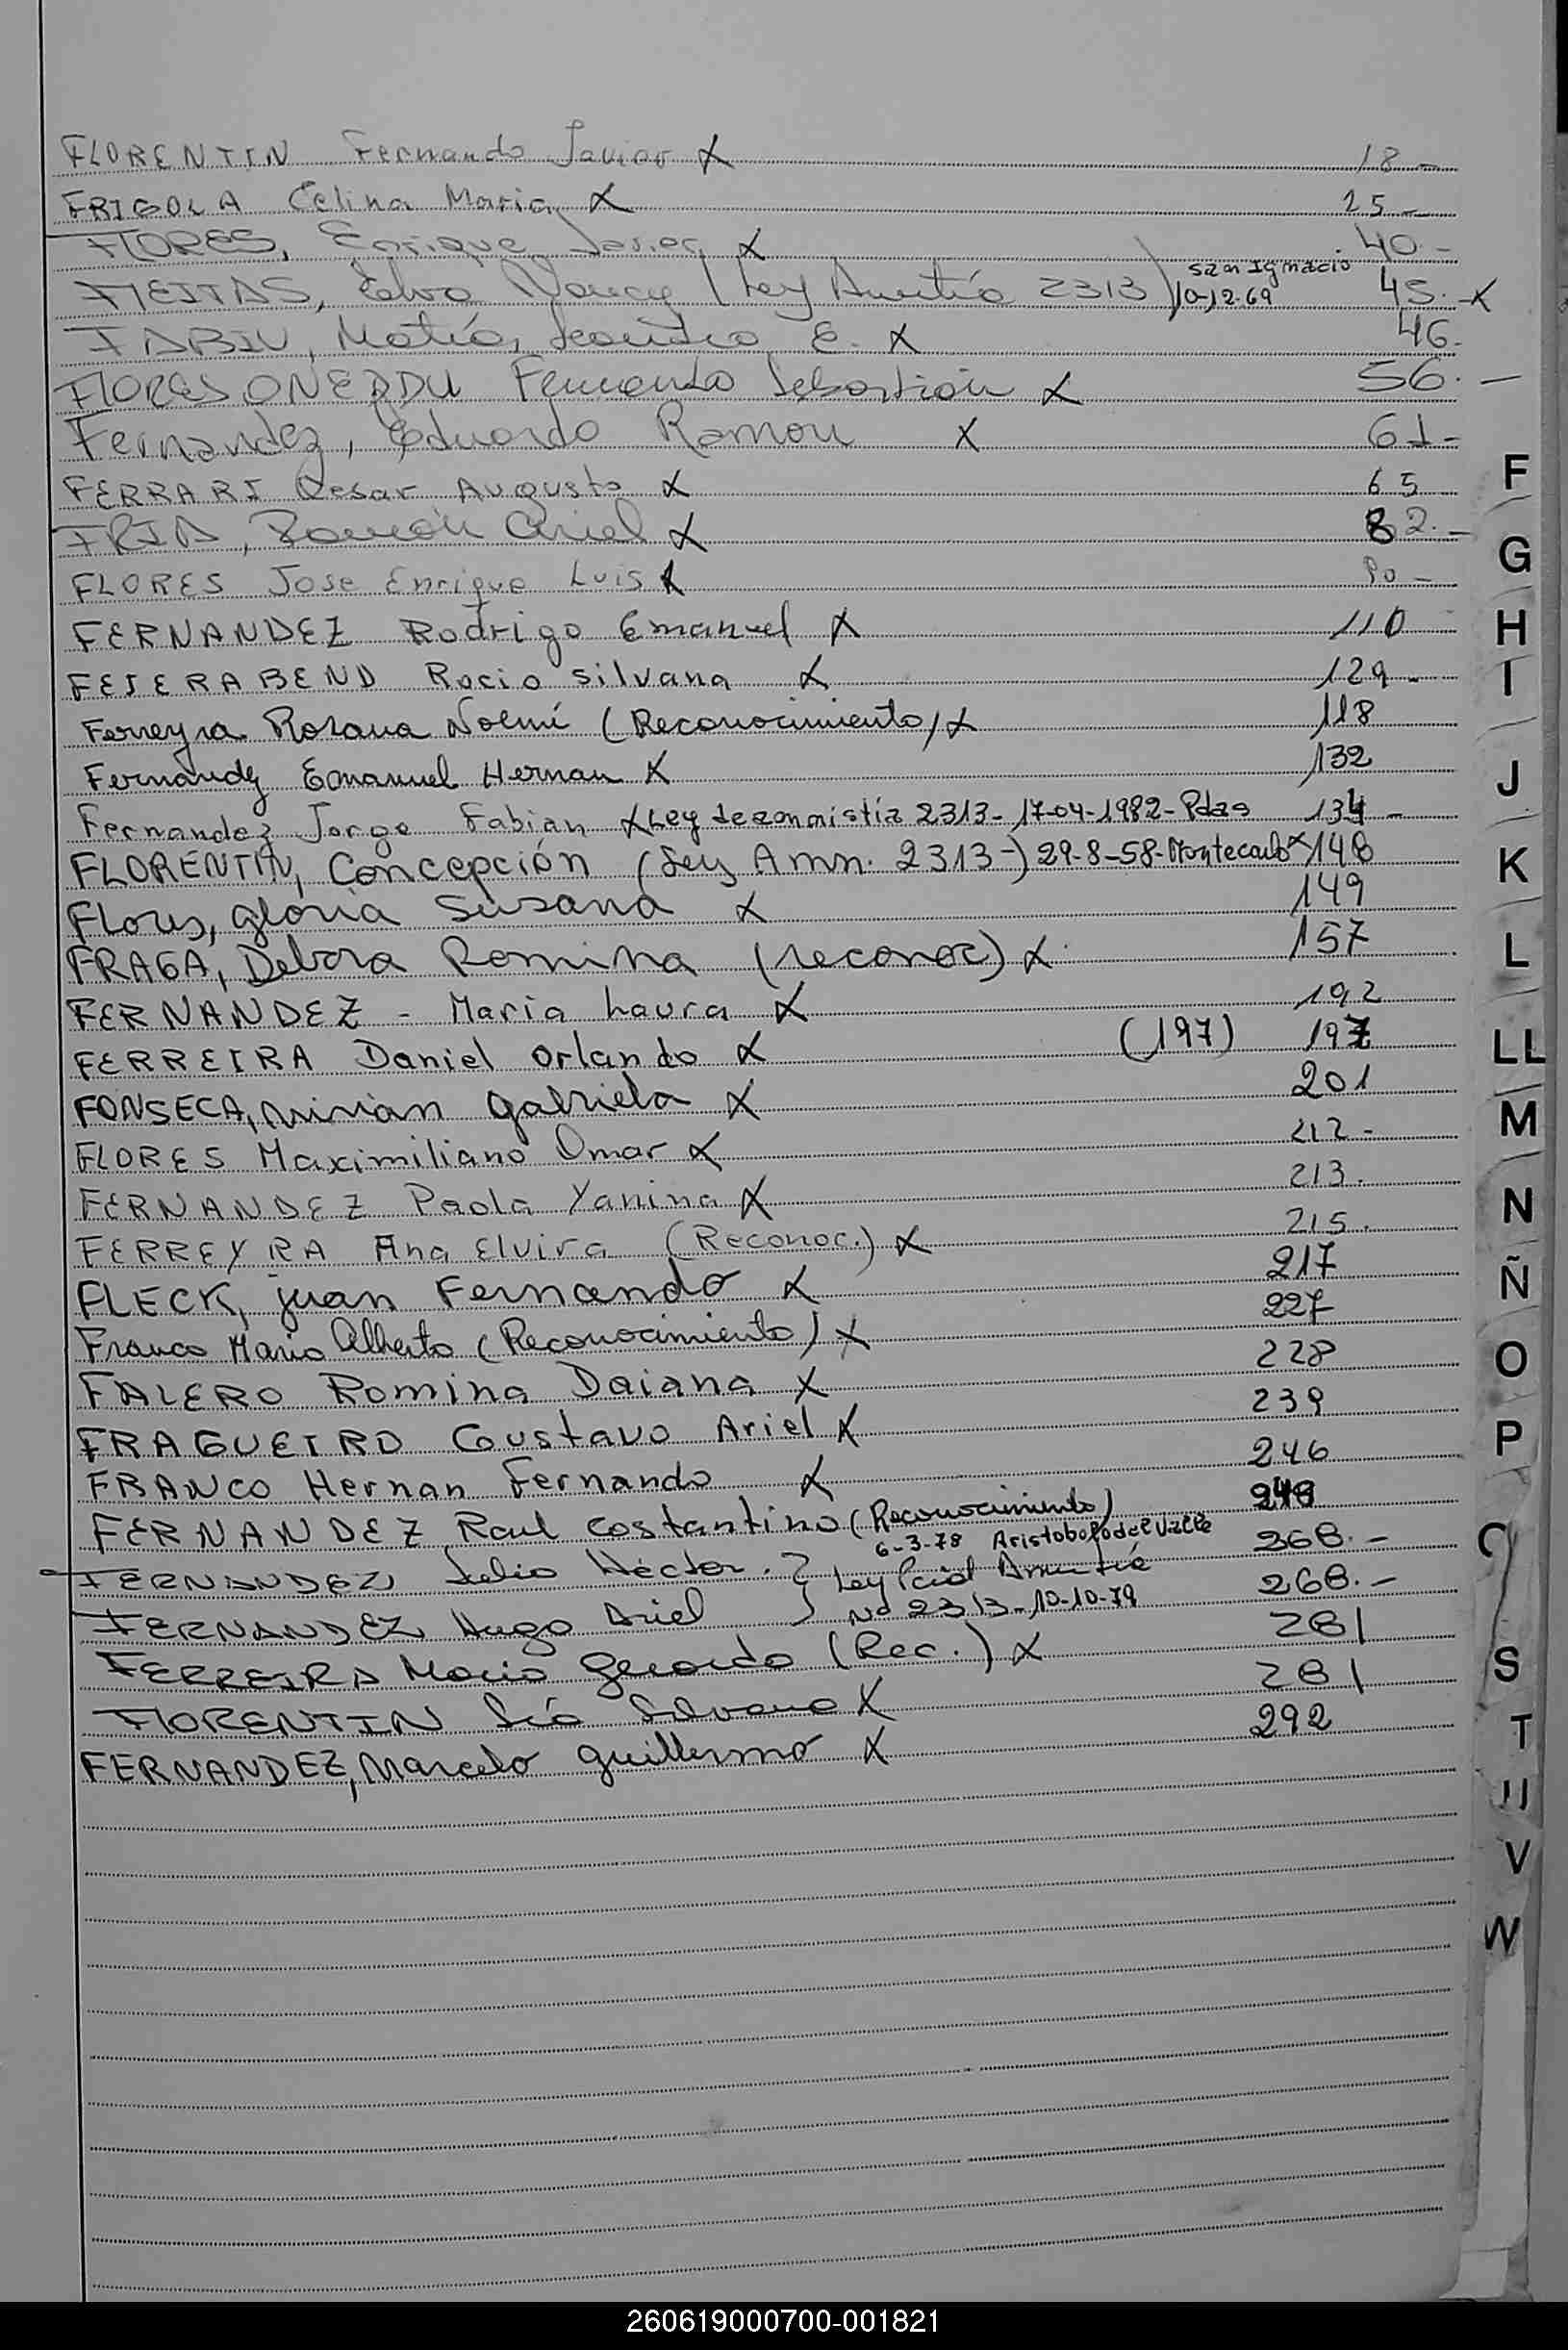 FLORENTIN Fernando Javier X 18 -
FRIGOLA Celina Maria X 25 -
FLORES, Enrique Javier X 40 -
FREITAS, Elva Nancy (Ley Amnistía 2313) San Ignacio 45. - X
10-12-69
FABIU, Matías Leandro E. X 46.
FLORES ONEDDU Fernando Sebastián X 56. -
Fernandez, Eduardo Ramon X 61 -
FERRARI Cesar Augusto X 65
FRIA, Ramón Ariel X 82. -
FLORES Jose Enrique Luis X 90 -
FERNANDEZ Rodrigo Emanuel X 110
FEIERABEND Rocio Silvana X 129 -
Ferreyra Rosana Noemí (Reconocimiento) X 118
Fernandez Emanuel Hernan X 132
Fernandez Jorge Fabian X Ley de amnistía 2313 - 17-04-1982 - Pdas 134 -
FLORENTIN, Concepción (Ley Amn. 2313 -) 29-8-58 - Montecarlo X 148
Flores, gloria Susana X 149
FRAGA, Debora Romina (reconoc) X 157
FERNANDEZ - Maria Laura X 192
FERREIRA Daniel Orlando X (197) 197
FONSECA, Mirian gabriela X 201
FLORES Maximiliano Omar X 212 -
FERNANDEZ Paola Yanina X 213.
FERREYRA Ana Elvira (Reconoc.) X 215.
FLECK, juan Fernando X 217
Franco Mario Alberto (Reconocimiento) X 227
FALERO Romina Daiana X 228
FRAGUEIRO Gustavo Ariel X 239
FRANCO Hernan Fernando X 246
FERNANDEZ Raul Costantino (Reconocimiento) 248
6-3-78 Aristobolo del Valle
FERNANDEZ Julio Héctor. } Ley Pcial Amnistía 268. -
FERNANDEZ Hugo Ariel } Nº 2313 - 10-10-79 268. -
FERREIRA Mario Gerardo (Rec.) X 281
FLORENTIN Silvana X 281
FERNANDEZ, Marcelo guillermo X 292
F
G
H
I
J
K
L
LL
M
N
Ñ
O
P
Q
S
T
U
V
W
260619000700-001821